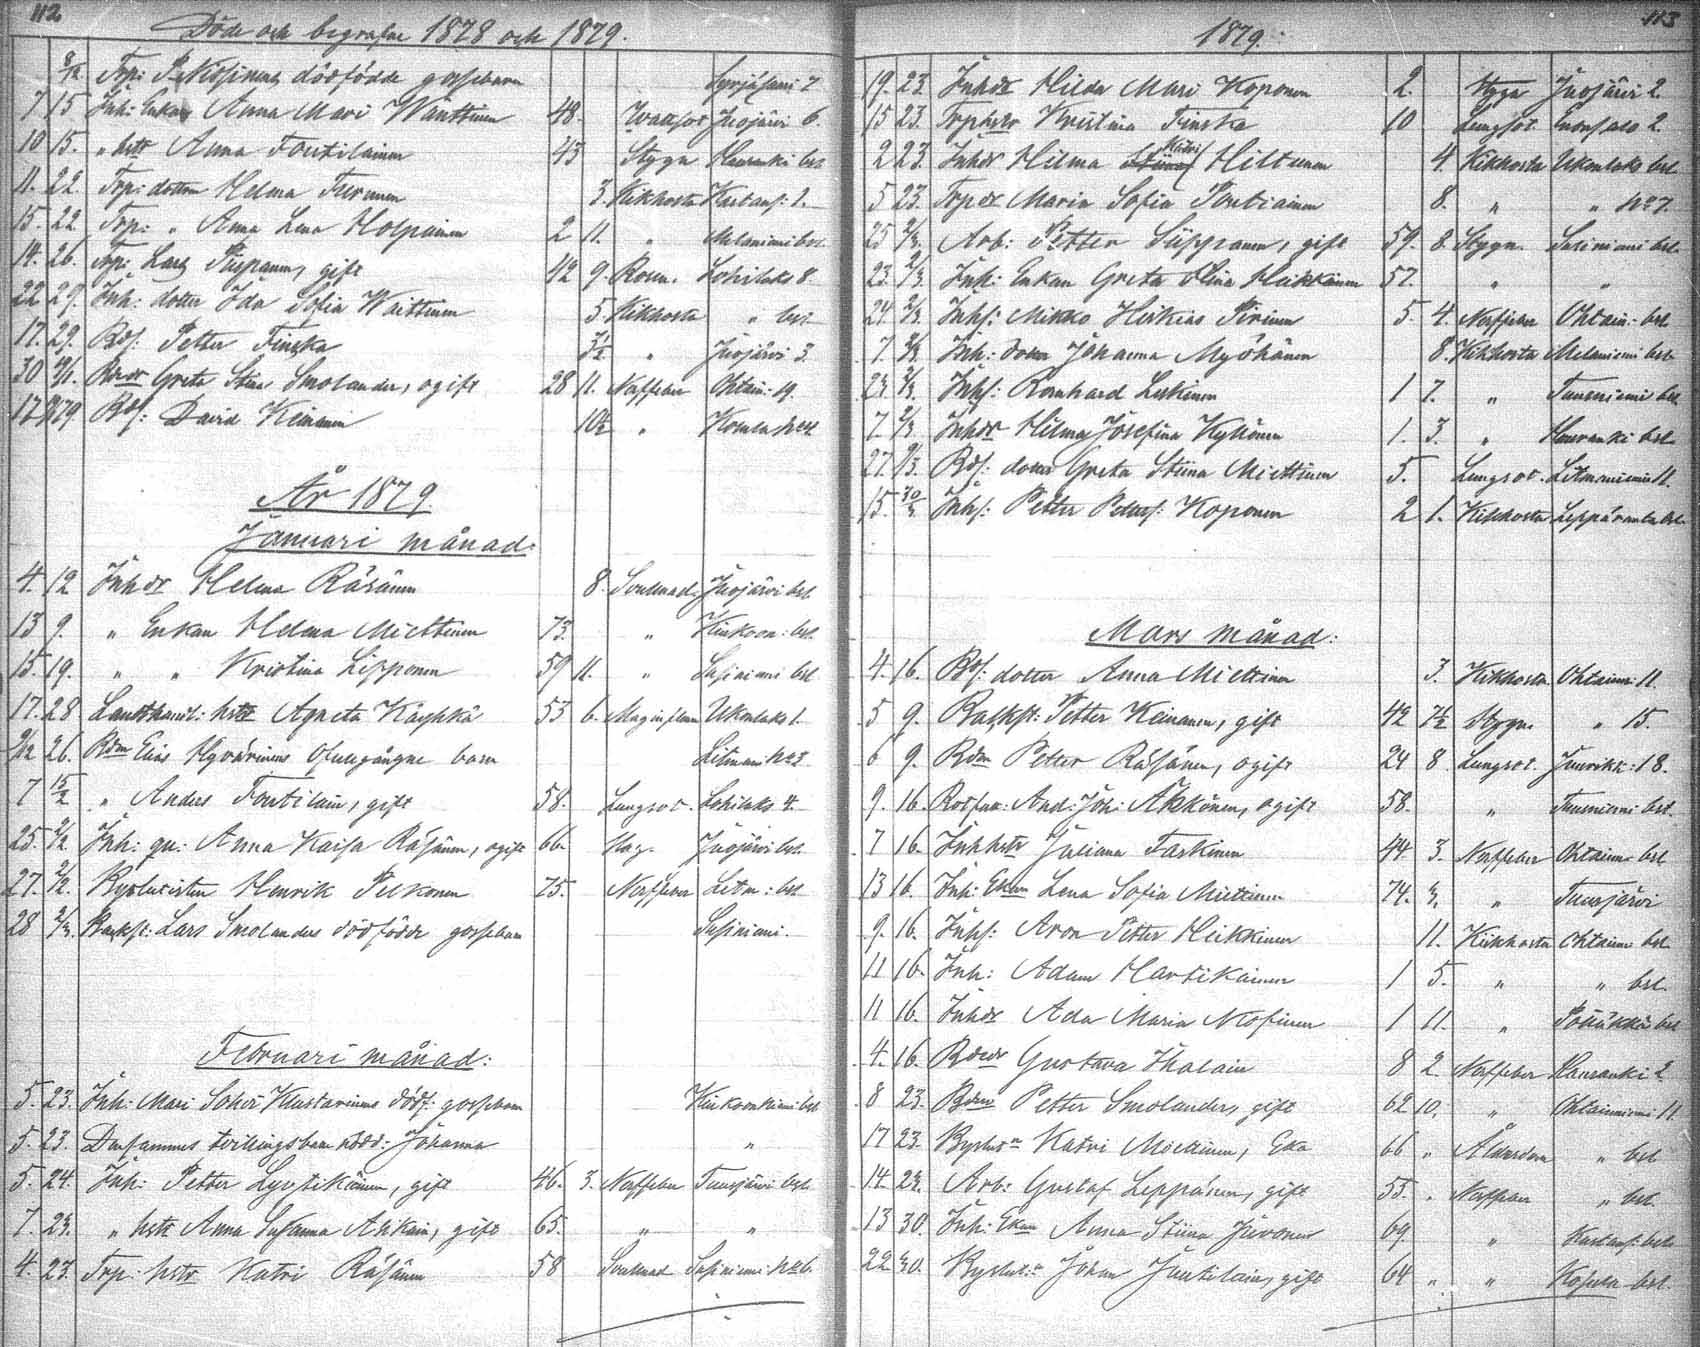 112
Döde och begrafne 1878 och 1879.
8/12. Torp: P. dödfödde gossebarn Syrjäsaari 7
7 15 Inh: Enkan Anna Mari Wänttinen 48. Wattsot Juojärvi 6.
10 15. " hstr Anna Tontilainen 43 Stygn Hauranki bst
11. 22 Torp: dotter Helma Turunen 3. Kikhosta Kartans: 1.
15. 22 Torp: " Anna Lena Holpainen 2 11. " Melaniemi bst.
14. 26. Torp: Lars gift 42 9. Rosen. Lohilaks 8.
22 29. Inh: dotter Ida Sofia Waittinen 5 Kikhosta " bst
17. 29. Bds. Petter Finska 3½ " Juojärvi 3.
30 Bdedr Greta Stina Smolander, ogift 28 11. Nerffeber Ohtain: 19.
17 Bds: David Keinänen 10½ "
År 1879.
Januari månad:
4. 12 Inhdr Helma Räsänen 8. Juojärvi bst.
13 9. " Enkan Helma Miettinen 73. " Kinkoon: bst.
15. 19. " " Kristina Lipponen 59 11. " Susiniemi bst
17. 28 hstr Agneta Käyhkö 53 6. Maginflam Ukonlaks 1.
26. Bdm Elias Hyvärinens barn Litmani No 3
7 15/2 " Anders Tontilain, gift 58. Lungsot. Lohilaks 4.
25. 2/2. Inh: qu: Anna Kaisa Räsänen, ogift 66. Hag. Juojärvi bst.
27. 2/2. Henrik Pelkonen 75. Nerffeber Litm: bst
28 2/2. Backst: Lars Smolanders dödfödde gossebarn Susiniemi.
Februari månad:
5. 23. Inh: Mari Sohvi Kustarinens dödf: gossebarn Kinkoonniemi bst
5. 23. Densammes tvillingsbarn Johanna "
5. 24. Inh: Petter Lyytikäinen, gift 46. 3. Nerffeber Tuusjärvi bst.
7. 23. " hstr Anna Susanna Ahkain, gift 65. " "
4. 23. Torp: hstr Katri Räsänen 58 Susiniemi No 6.
113
1879.
19. 23. Inhdr Hilda Mari Koponen 2. Stygn Juojärvi 2.
15 23. Kristina Finska 10 Lungsot. Enonsalo 2.
2 23. Inhdr Hilma Hiltunen 4. Kikhosta Ukonlaks bst
5 23. Torpdr Maria Sofia Pentiainen 8. " " No 7.
25 2/3. Arb: Petter Siippainen, gift 59. 8. Stygn. Susiniemi bst.
23. 2/3. Inh: Enkan Greta Stina Heikkinen 57. " "
24. 2/3. Inhs: Mikko Hiskias Pirinen 5. 4. Nerffeber Ohtain: bst.
7 Inh: dotter Johanna Myöhänen 8. Kikhosta Melaniemi bst.
24 2/3. Inhs: Romhard Leskinen 1 7. " Tuusniemi bst
7. 2/3. Inhdr Hilma Josefina Kyllönen 1. 3. " Hauranki bst
27. 9/3. Bds: dotter Greta Stiina Miettinen 5. Lungsot. Litmaniemi 11.
15. Inhs: Petter Petters: Koponen 2 1. Kikhosta Leppäranta bst.
Mars månad:
4. 16. Bds: dotter Anna Miettinen 3. Kikhosta. Ohtainn: 11.
5 9. Backst: Petter Keinänen, gift 42 7½ Stygn. " 15.
6 9. Bdm Petter Räsänen, ogift 24 8 Lungsot. Juurikk: 18.
9. 16. And: Joh: Akkänen, ogift 58. " Tuusniemi bst.
7 16. Inhhstr Juliana Taskinen 44. 3. Nerffeber Ohtain bst
13 16. Inh: Ekan Lena Sofia Miettinen 74. " Tuusjärvi
9. 16. Inhs: Aron Petter Heikkinen 11. Kikhosta Ohtainn bst.
11 16. Inh: Adam Hartikainen 1 5. " " bst.
11 16. Inhdr Ada Maria Nosinen 1 11. "
4. 16. Bdedr Gustava Ihalain 8 2. Nerffeber Hauranki 2.
8 23. Bdm Petter Smolander, gift 62 10. " Ohtainniemi 11.
17 23. Katri Miettinen, Eka 66 " Ålderdom " bst
14. 23. Arb: Gustaf Leppänen, gift 55. " Nerffeber " bst.
13 30. Inh: Ekan Anna Stiina Juvonen 69. " Kartans: bst
22 30. Johan Juntilain, gift 64 " " Kosula bst.